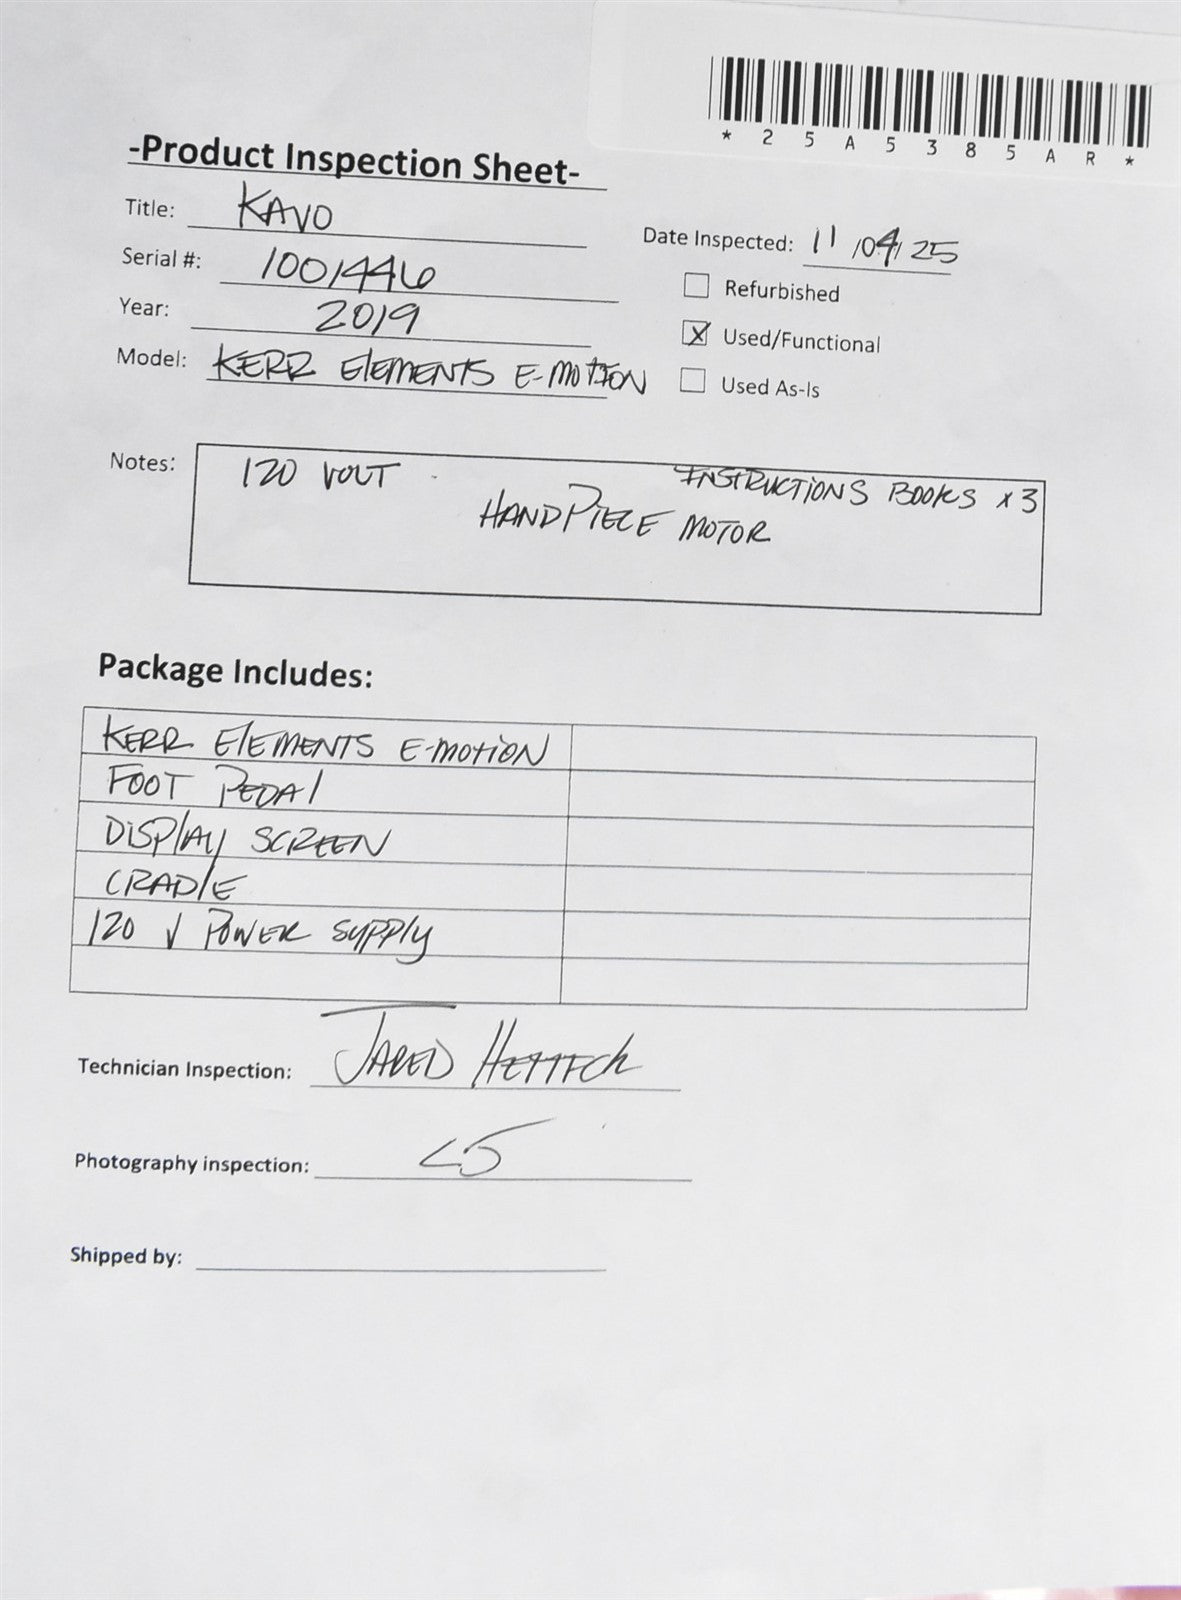 *25A5385AR*
-Product Inspection Sheet-
Title: KAVO
Date Inspected: 11/04/25
Serial #: 1001446
Refurbished
Year: 2019
X Used/Functional
Model: KERR ElEMENTS E-MOTION
Used As-Is
Notes: 120 VOLT INSTRUCTIONS BOOKS x 3
HANDPIECE MOTOR
Package Includes:
KERR ElEMENTS E-MOTiON
FOOT PEDAl
DiSPlAy SCREEN
CRADlE
120 V POWER SUPPly
Technician Inspection: JARED
Photography inspection:
Shipped by: